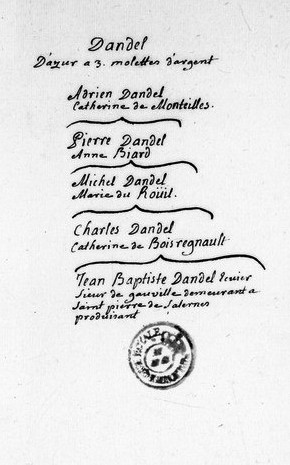 Dandel
D'azur a 3. molettes d'argent
Adrien Dandel
Catherine de Monteilles.
Pierre Dandel
Anne Biard
Michel Dandel
Marie du Roüil.
Charles Dandel
Catherine de Boisregnault
Jean Baptiste Dandel Ecuier
Sieur de gauville demeurant a
Saint pierre de Salernes
produisant